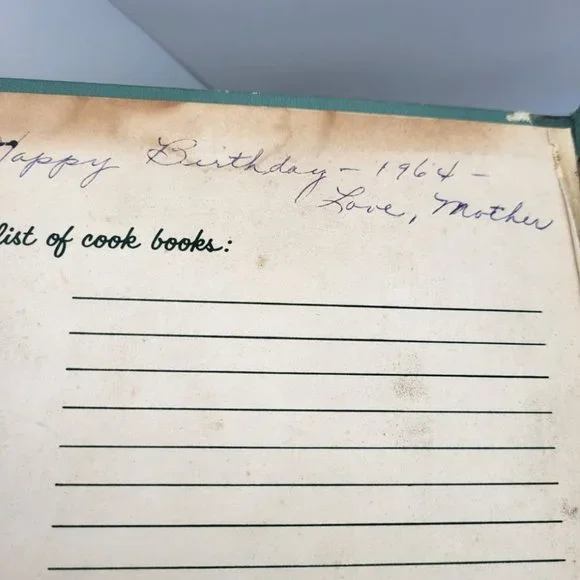 Happy Birthday - 1964 -
Love, Mother
list of cook books: